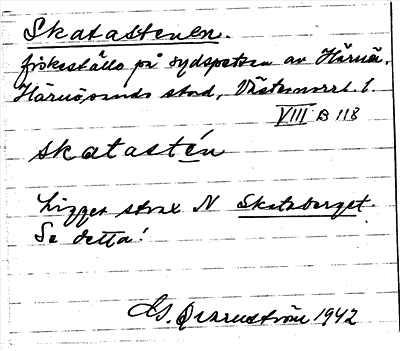 Skatastenen.
fiskeställe på sydspetsen av Härnö,
Härnösands stad, Västernorrl. l.
VIII B 118
skatastén
Ligger strax N Skataberget.
Se detta!
1942